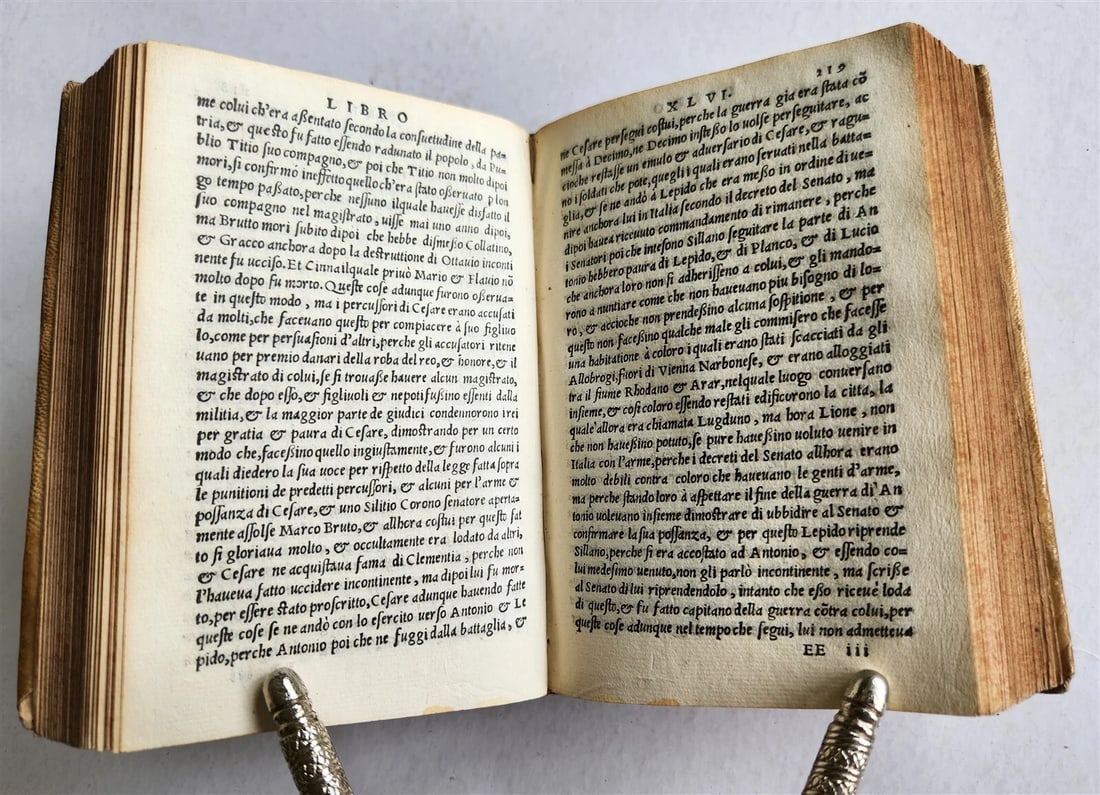 LIBRO
me colui ch'era aßentato secondo la consuetudine della pa=
tria,& questo fu fatto essendo radunato il popolo, da Pu=
blio Titio suo compagno,& poi che Titio non molto dipoi
mori,si confirmò ineffetto quello ch'era stato osseruato p lon
go tempo paßato,perche nessuno ilquale hauesse disfatto il
suo compagno nel magistrato, uisse mai uno anno dipoi,
ma Brutto mori subito dipoi che hebbe dismesso Collatino,
& Gracco anchora dopo la destruttione di Ottauio inconti
nente fu ucciso. Et Cinna ilquale priuò Mario & Flauio nõ
molto dopo fu morto. Queste cose adunque furono osserua=
te in questo modo , ma i percussori di Cesare erano accusati
da molti,che faceuano questo per compiacere à suo figliuo
lo,come per persuasioni d'altri,perche gli accusatori ritene
uano per premio danari della roba del reo,& honore,& il
magistrato di colui,se si trouaße hauere alcun magistrato,
& che dopo esso,& figliuoli & nepoti fußino essenti dalla
militia,& la maggior parte de giudici condennorono i rei
per gratia & paura di Cesare, dimostrando per un certo
modo che,faceßino quello ingiustamente,& furono alcuni i
quali diedero la sua uoce per rispetto della legge fatta sopra
le punitioni de predetti percussori, & alcuni per l'arme &
possanza di Cesare,& uno Silitio Corono senatore aperta=
mente assolse Marco Bruto,& allhora costui per questo fat
to si gloriaua molto , & occultamente era lodato da altri,
& Cesare ne acquistaua fama di Clementia , perche non
l'haueua fatto uccidere incontinente , ma dipoi lui fu mor=
to,per essere stato proscritto,Cesare adunque hauendo fatte
queste cose se ne andò con lo esercito uerso Antonio & Le
pido,perche Antonio poi che ne fuggi dalla battaglia, &
XLVI. 219
ne Cesare persegui costui,perche la guerra gia era stata cõ
messa à Decimo,ne Decimo insteßo lo uolse perseguitare, ac
cioche restasse un emulo & aduersario di Cesare,& ragu=
no i soldati che pote,que gli i quali erano seruati nella batta=
glia,& se ne andò à Lepido che era messo in ordine di ue=
nire anchora lui in Italia secondo il decreto del Senato , ma
dipoi hauea riceuuto commandamento di rimanere , perche
i Senatori poi che intesono Sillano seguitare la parte di An
tonio hebbero paura di Lepido,& di Planco, & di Lucio
che anchora loro non si adherisseno a colui,& gli mando=
rono a nuntiare come che non haueuano piu bisogno di lo=
ro , & accioche non prendeßino alcuna sospitione , & per
questo non faceßino qualche male gli commisero che facesse
una habitatione à coloro i quali erano stati scacciati da gli
Allobrogi,fuori di Vienna Narbonese, & erano alloggiati
tra il fiume Rhodano & Arar,nelquale luogo conuersano
insieme,& cosi coloro essendo restati edificorono la citta, la
quale'allora era chiamata Lugduno , ma hora Lione , non
che non haueßino potuto,se pure haueßino uoluto uenire in
Italia con l'arme,perche i decreti del Senato allhora erano
molto debili contra coloro che haueuano le genti d'arme,
ma perche stando loro à aspettare il fine della guerra di An
tonio uoleuano insieme dimostrare di ubbidire al Senato &
confirmare la sua possanza, & per questo Lepido riprende
Sillano,perche si era accostato ad Antonio, & essendo co=
lui medesimo uenuto,non gli parlò incontinente , ma scriße
al Senato di lui riprendendolo , intanto che esso riceuè loda
di questo,& fu fatto capitano della guerra cõtra colui,per
queste cose adunque nel tempo che segui, lui non admetteua
EE iii